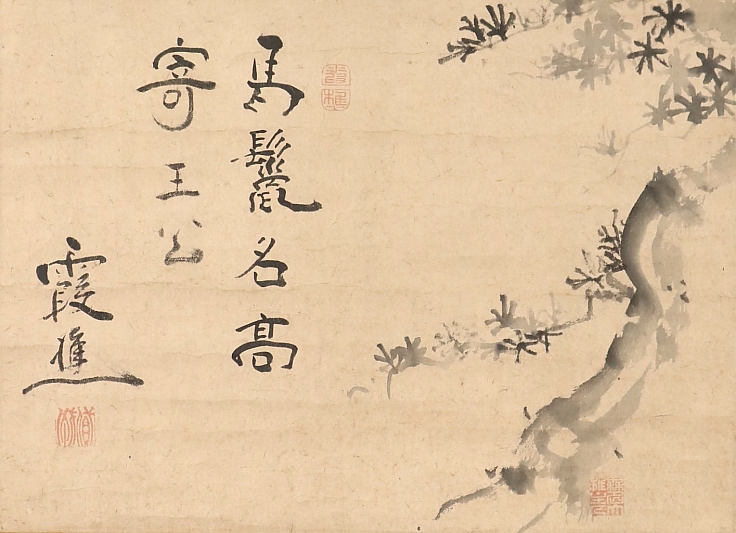 馬鬣名高
寄王公
霞樵